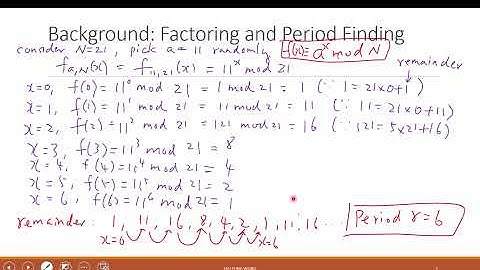 Background: Factoring and Period Finding
consider N=21, pick a=11 randomly f(x)=a^x mod N
f_{a,N}(x) = f_{11,21}(x) = 11^x mod 21 remainder
x=0, f(0)=11^0 mod 21 = 1 mod 21 = 1 (∵ 1=21×0+1)
x=1, f(1)=11^1 mod 21 = 11 mod 21 = 11 (∵ 11=21×0+11)
x=2, f(2)=11^2 mod 21 = 121 mod 21 = 16 (∵ 121=5×21+16)
x=3, f(3)=11^3 mod 21 = 8
x=4, f(4)=11^4 mod 21 = 4
x=5, f(5)=11^5 mod 21 = 2
x=6, f(6)=11^6 mod 21 = 1
remainder: 1, 11, 16, 8, 4, 2, 1, 11, 16 ... Period r=6
x=0 x=6